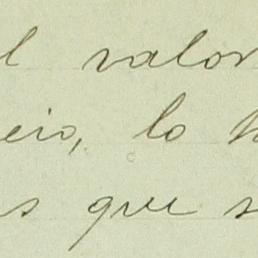 l valor
eio, lo
s que s